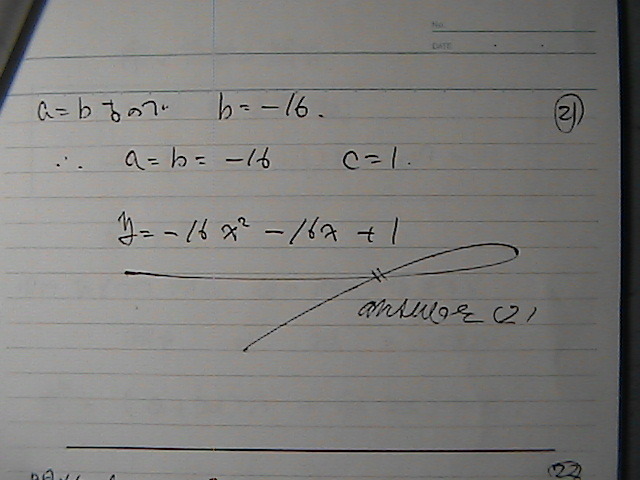 No.
DATE
a = b なので b = -16. (21)
∴ a = b = -16 c = 1.
y = -16x² - 16x + 1
answer (2)
(22)